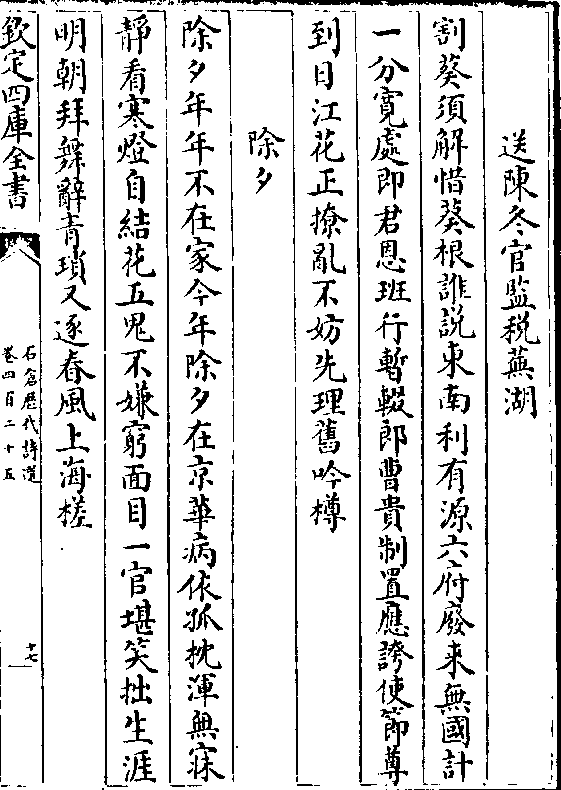 送陳冬官監税蕪湖
割葵須解惜葵根誰說東南利有源六府廢來無國計
一分寛處即君恩班行暫輟郎曹貴制置應誇使節尊
到日江花正撩亂不妨先理舊吟樽
除夕
除夕年年不在家今年除夕在京華病依孤枕渾無寐
靜看寒燈自結花五鬼不嫌窮面目一官堪笑拙生涯
明朝拜舞辭青瑣又逐春風上海槎
欽定四庫全書
石倉歴代詩選
卷四百二十五
十七